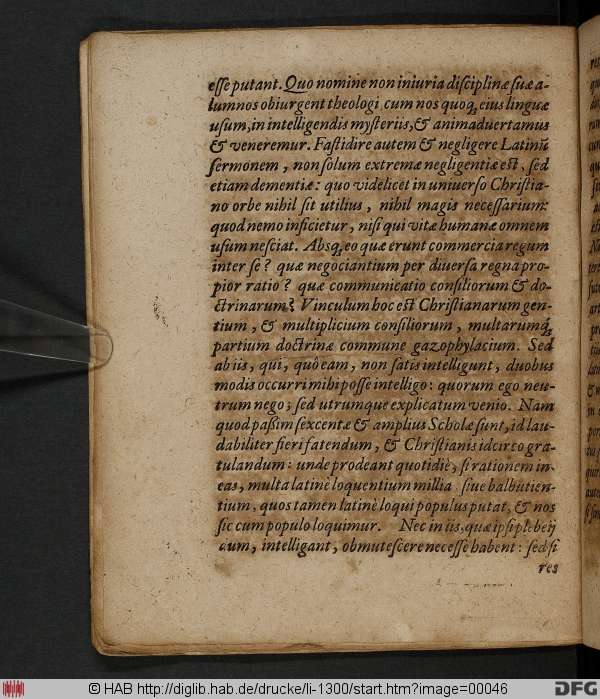 esse putant. Quo nomine non iniuria disciplinæ suæ a-
lumnos obiurgent theologi, cum nos quoq; eius linguæ
usum, in intelligendis mysteriis, & animaduertamus
& veneremur. Fastidire autem & negligere Latinū
sermonem, non solum extremæ negligentiæ est, sed
etiam dementiæ: quo videlicet in uniuerso Christia-
no orbe nihil sit utilius, nihil magis necessarium:
quod nemo inficietur, nisi qui vitæ humanæ omnem
usum nesciat. Absq; eo quæ erunt commercia regum
inter se? quæ negociantium per diuersa regna pro-
pior ratio? quæ communicatio consiliorum & do-
ctrinarum? Vinculum hoc est Christianarum gen-
tium, & multiplicium consiliorum, multarumq;
partium doctrinæ commune gazophylacium. Sed
ab iis, qui, quò eam, non satis intelligunt, duobus
modis occurri mihi posse intelligo: quorum ego neu-
trum nego; sed utrumque explicatum venio. Nam
quod paßim sexcentæ & amplius Scholæ sunt, id lau-
dabiliter fieri fatendum, & Christianis idcirco gra-
tulandum: unde prodeant quotidiè, si rationem in-
eas, multa latinè loquentium millia siue balbutien-
tium, quos tamen latinè loqui populus putat, & nos
sic cum populo loquimur. Nec in iis, quæ ipsi plebeij
cum, intelligant, obmutescere necesse habent: sed si
res
© HAB http://diglib.hab.de/drucke/li-1300/start.htm?image=00046
DFG